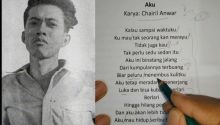 Aku
Karya: Chairil Anwar
Kalau sampai waktuku
Ku mau tak seorang kan merayu
Tidak juga kau
Tak perlu sedu sedan itu
Aku ini binatang jalang
Dari kumpulannya terbuang
Biar peluru menembus kulitku
Aku tetap meradang menerjang
Luka dan bisa kubawa
Berlari
Hingga hilang
Dan aku akan lebih
Aku mau hidup